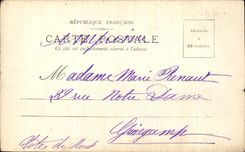 RÉPUBLIQUE FRANÇAISE
CARTE POSTALE
Ce côté est exclusivement réservé à l'adresse
Madame Marie Renaut
rue Notre Dame
Guingamp
Côtes du Nord